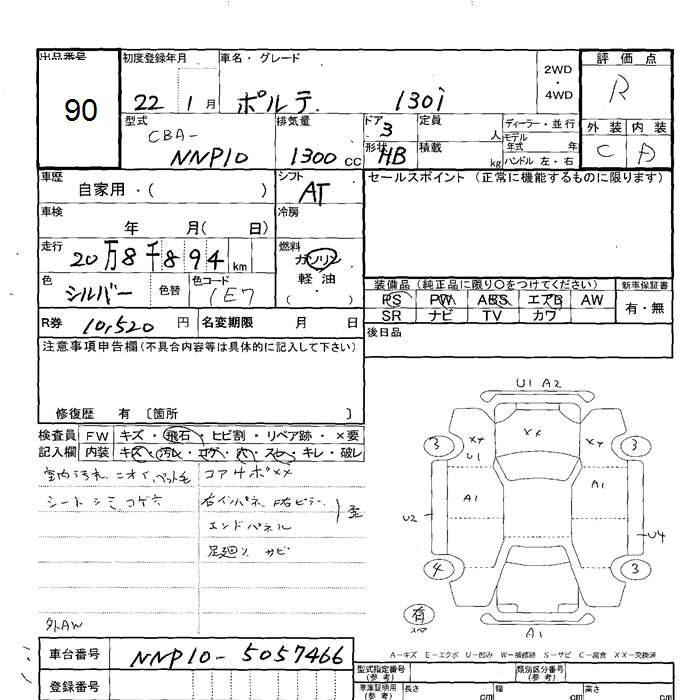 出品番号 初度登録年月 車名・グレード 評価点
90 22 1月 ポルテ 130i 2WD・4WD R
型式 排気量 ドア 定員 ディーラー・並行 外装 内装
CBA- 3 人 モデル年式 年
NNP10 1300cc 形状 HB 積載 kg ハンドル 左・右 C D
車歴 自家用・( ) シフト AT セールスポイント(正常に機能するものに限ります)
車検 年 月( 日) 冷房
走行 20万8千894km 燃料 ガソリン
軽油
( )
色 シルバー 色替 色コード 1E7 装備品(純正品に限り○をつけてください) 新車保証書
PS PW ABS エアB AW 有・無
R券 10,520円 名変期限 月 日 SR ナビ TV カワ
後日品
注意事項申告欄(不具合内容等は具体的に記入して下さい)
修復歴 有 〔箇所 〕
検査員 FW キズ・飛石・ヒビ割・リペア跡・×要
記入欄 内装 キズ・汚レ・コゲ・穴・スレ・キレ・破レ
室内汚れ ニオイ ペット毛 コア4ポXX
シートシミ コゲ穴 右インパネ F右ピラー 歪
エンドパネル
足廻り サビ
外AW
U1 A2
3 XY U1 XX XY 3
A1 A1
U2 U4
4 3
有
スペア A1
A-キズ E-エクボ U-凹み W-補修跡 S-サビ C-腐食 XX-交換済
車台番号 NNP10-5057466
型式指定番号 類別区分番号
登録番号 車庫証明用(参考) 長さ cm 幅 cm 高さ cm